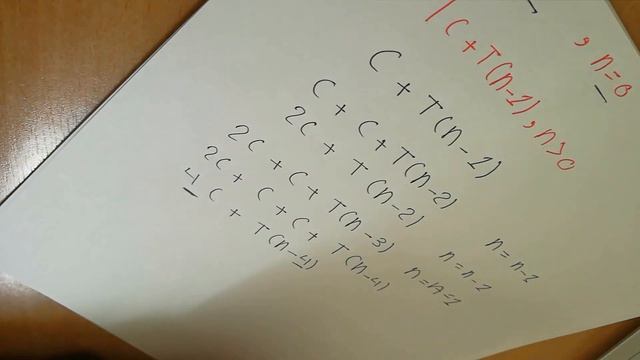 , n=0
C + T(n-1), n>0
C + T(n-1)
C + C + T(n-2)
2C + T(n-2)
2C + C + T(n-3)
2C + C + C + T(n-4)
4C + T(n-4)
n = n-1
n = n-2